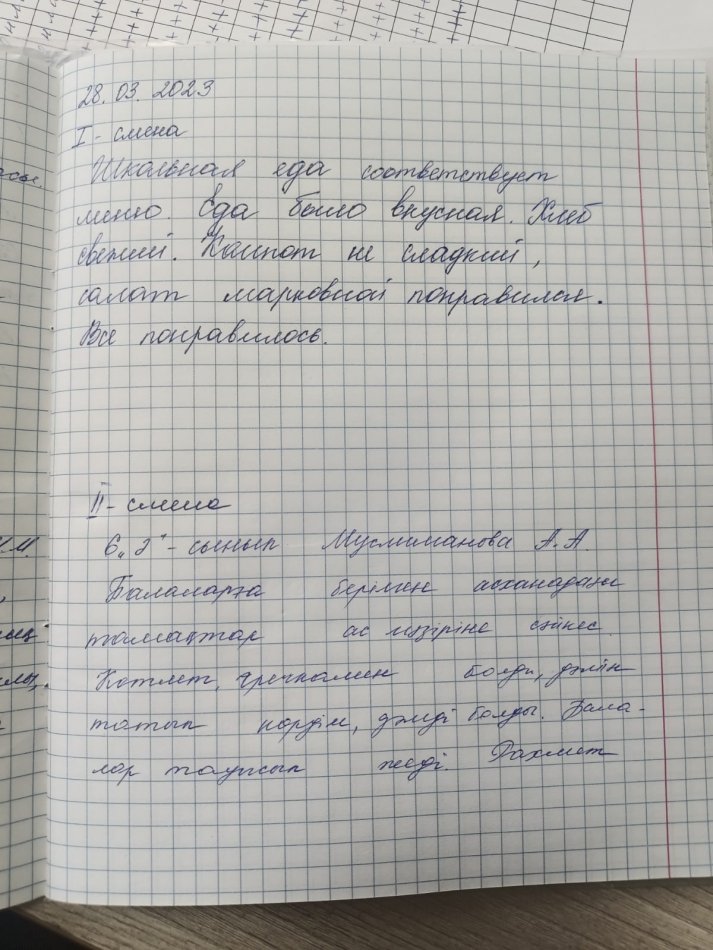 28.03.2023
I - смена
Школьная еда соответствует
меню. Еда было вкусная. Хлеб
свежий. Компот не сладкий,
салат марковнай понравился.
Все понравилось.
II - смена
6 „Ә" - сынып Муслиманова А.А.
Балаларға берілген асханадағы
тамақтар ас мәзіріне сәйкес.
Котлет, гречкамен болды, дәмін
татып көрдім, дәмді болды. Бала-
лар тауысып жеді. Рахмет